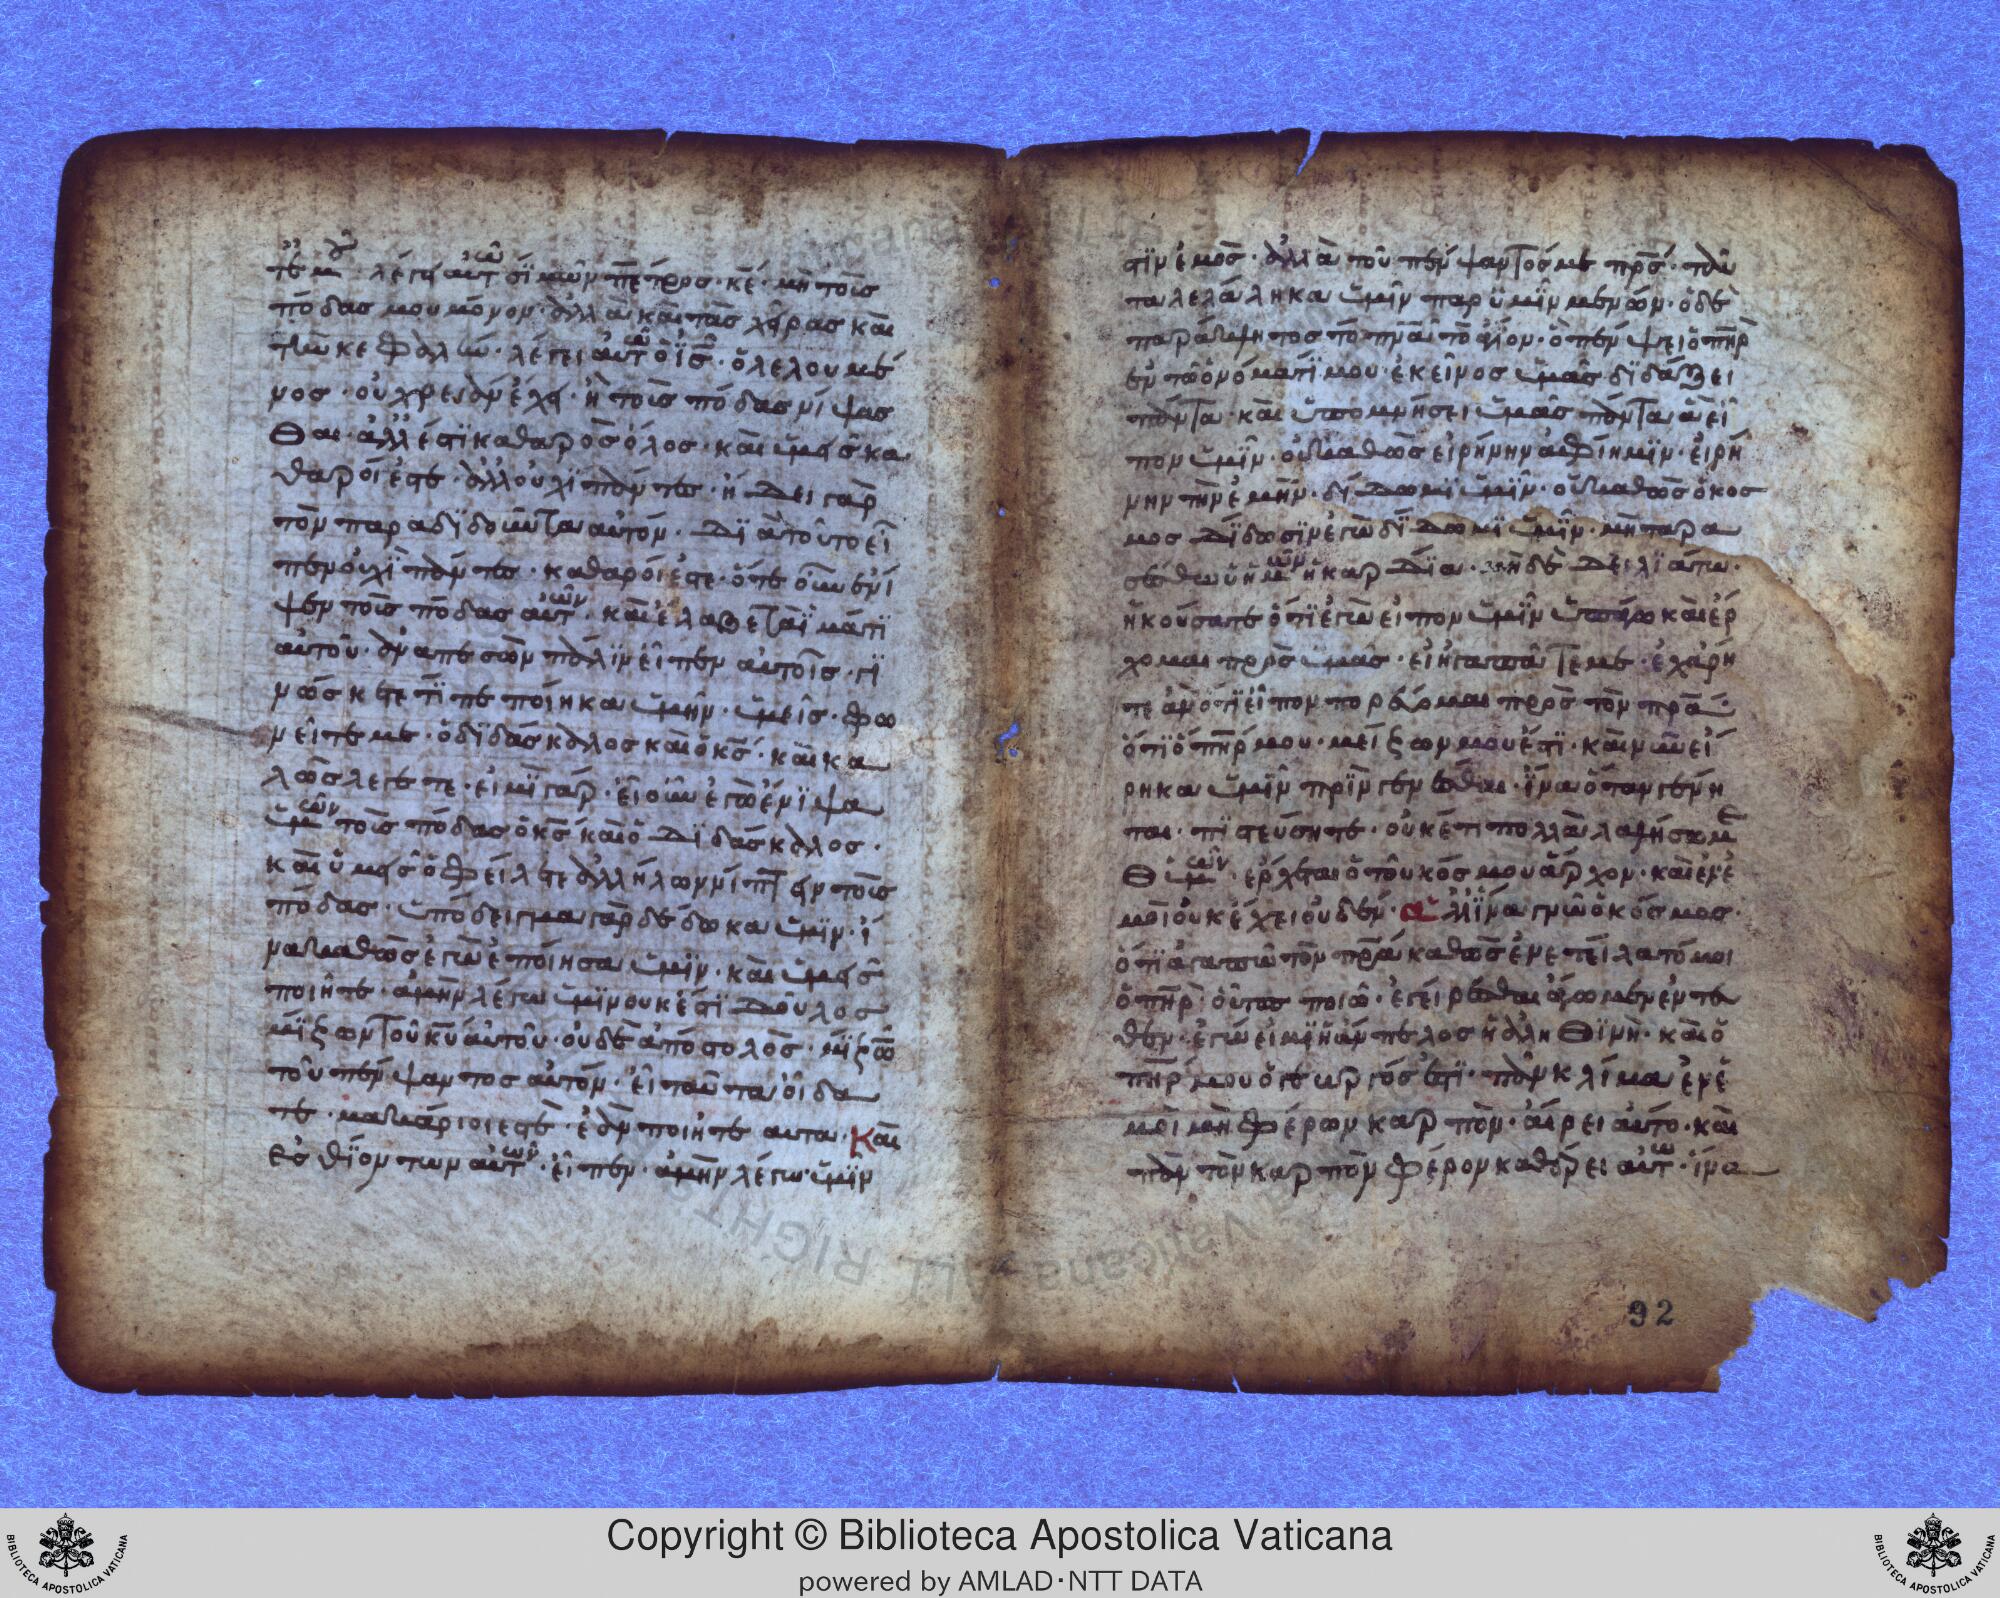 τέ μου· λέγει αὐτῶ σίμων πέτρος· κε· μὴ τοὺς
πόδας μου μόνον· ἀλλὰ καὶ τὰς χεῖρας καὶ
τὴν κεφαλήν· λέγει αὐτῶ ὁ ις· ὁ λελουμέ
νος· οὐ χρείαν ἔχει· ἢ τοὺς πόδας νίψασ
θαι· ἀλλ' ἔστι καθαρὸς ὅλος· καὶ ὑμεῖς κα
θαροί ἐστε· ἀλλ' οὐχὶ πάντες· ἤδει γὰρ
τὸν παραδιδοῦντα αὐτόν· διὰ τοῦτο εἶ
πεν οὐχὶ πάντες· καθαροί ἐστε· ὅτε οὖν ἔνι
ψεν τοὺς πόδας αὐτῶν· καὶ ἔλαβε τὰ ἱμάτι
αὐτοῦ· ἀναπεσὼν πάλιν εἶπεν αὐτοῖς· γι
νώσκετε τί πεποίηκα ὑμῖν· ὑμεῖς· φω
νεῖτέ με· ὁ διδάσκαλος καὶ ὁ κς· καὶ κα
λῶς λέγετε· εἰμὶ γάρ· εἰ οὖν ἐγὼ ἔνιψα
ὑμῶν τοὺς πόδας ὁ κς καὶ ὁ διδάσκαλος·
καὶ ὑμεῖς ὀφείλετε ἀλλήλων νίπτειν τοὺς
πόδας· ὑπόδειγμα γὰρ δέδωκα ὑμῖν· ἵ
να καθὼς ἐγὼ ἐποίησα ὑμῖν· καὶ ὑμεῖς
ποιῆτε· ἀμὴν λέγω ὑμῖν οὐκ ἔστι δοῦλος
μίζων τοῦ κυ αὐτοῦ· οὐδὲ ἀπόστολος· μίζων
τοῦ πέμψαντος αὐτόν· εἰ ταῦτα οἴδα
τε· μακάριοί ἐστε· ἐὰν ποιῆτε αυτα· Καὶ
ἐσθιόντων αὐτῶν· εἶπεν· ἀμὴν λέγω ὑμῖν
στιν ἐμὸς· ἀλλὰ τοῦ πέμψαντός με πρς· ταῦ
τα λελάληκα ὑμῖν παρ' ὑμῖν μένων· ὁ δὲ
παράκλητος τὸ πνα τὸ ἅγιον· ὃ πέμψει ὁ πηρ
ἐν τῶ ὀνόματί μου· ἐκεῖνος ὑμᾶς διδάξει
πάντα· καὶ ὑπομνήσει ὑμᾶς πάντα ἃ εἶ
πον ὑμῖν· οὐ καθὼς εἰρήνην ἀφίημιν· εἰρή
νην τὴν ἐμὴν· δίδωμι ὑμῖν· οὐ καθὼς ὁ κοσ
μος δίδωσιν ἐγὼ δίδωμι ὑμῖν· μὴ ταρα
σέσθω ὑμῶν ἡ καρδία· μηδὲ δειλιάτω·
ἠκούσατε ὅτι ἐγὼ εἶπον ὑμῖν ὑπάγω καὶ ἔρ
χομαι πρὸς ὑμᾶς· εἰ ἠγαπᾶτέ με· ἐχάρη
τε ἂν ὅτι εἶπον πορεύομαι πρὸς τὸν πρα·
ὅτι ὁ πηρ μου· μείζων μου ἐστι· καὶ νῦν εἴ
ρηκα ὑμῖν πρὶν γενέσθαι· ἵνα ὅταν γένη
ται· πιστεύσητε· οὐκέτι πολλὰ λαλήσω με
θ' ὑμῶν· ἔρχεται ὁ τοῦ κόσμου ἄρχον· καὶ ἐν ἐ
μοὶ οὐκ ἔχει οὐδέν· ἀλλ' ἵνα γνῶ ὁ κόσμος·
ὅτι ἀγαπῶ τὸν πρα καθὼς ἐνετείλατό μοι
ὁ πηρ· οὕτως ποιῶ· ἐγείρεσθαι ἄγωμεν ἐντεῦ
θεν· ἐγώ εἰμι ἡ ἄμπελος ἡ ἀληθινή· καὶ ὁ
πηρ μου ὁ γεωργός ἐστι· πᾶν κλίμα ἐν ἐ
μοὶ μὴ φέρων καρπὸν· αἴρει αὐτό· καὶ
πᾶν τὸν καρπὸν φέρον καθαίρει αὐτῶ· ἵνα
92
Copyright © Biblioteca Apostolica Vaticana
powered by AMLAD·NTT DATA